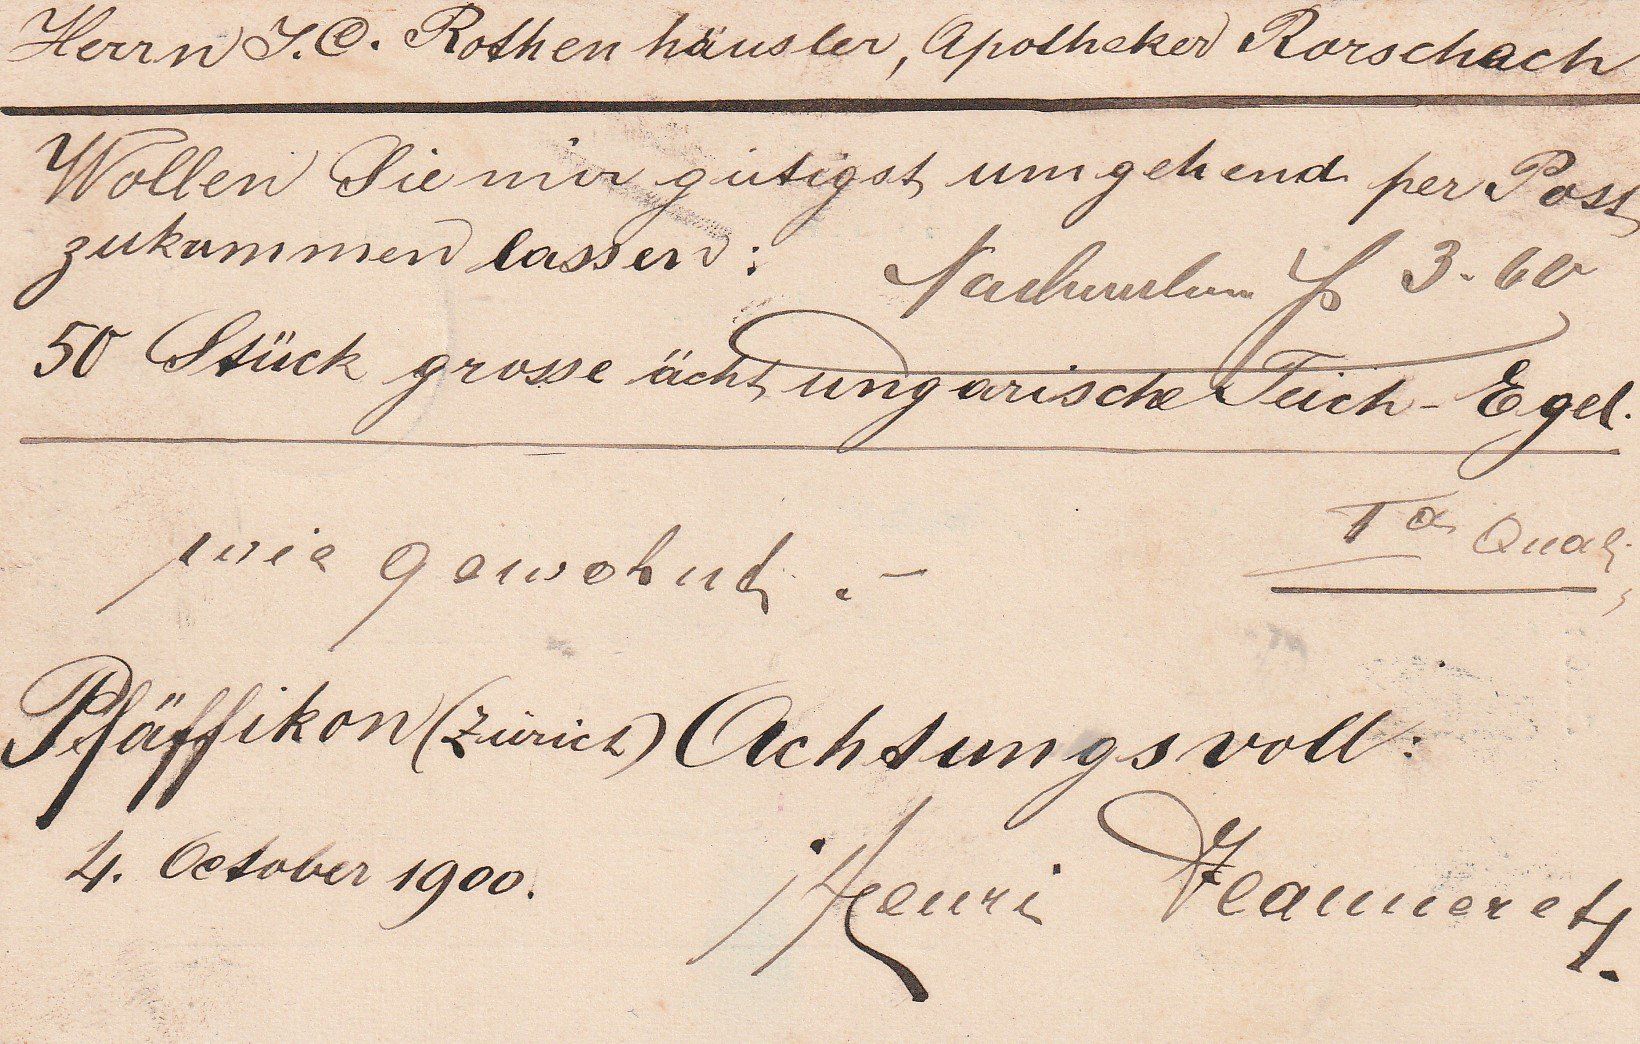 Herrn J. C. Rothenhäusler, Apotheker Rorschach
Wollen Sie mir gütigst umgehend per Post
zukommen lassen:
3.60
50 Stück grosse ächt ungarische Teich-Egel.
Ia Qual.
wie gewohnt.-
Pfäffikon (Zürich) Achtungsvoll:
4. October 1900.
Henri Jeanneret.